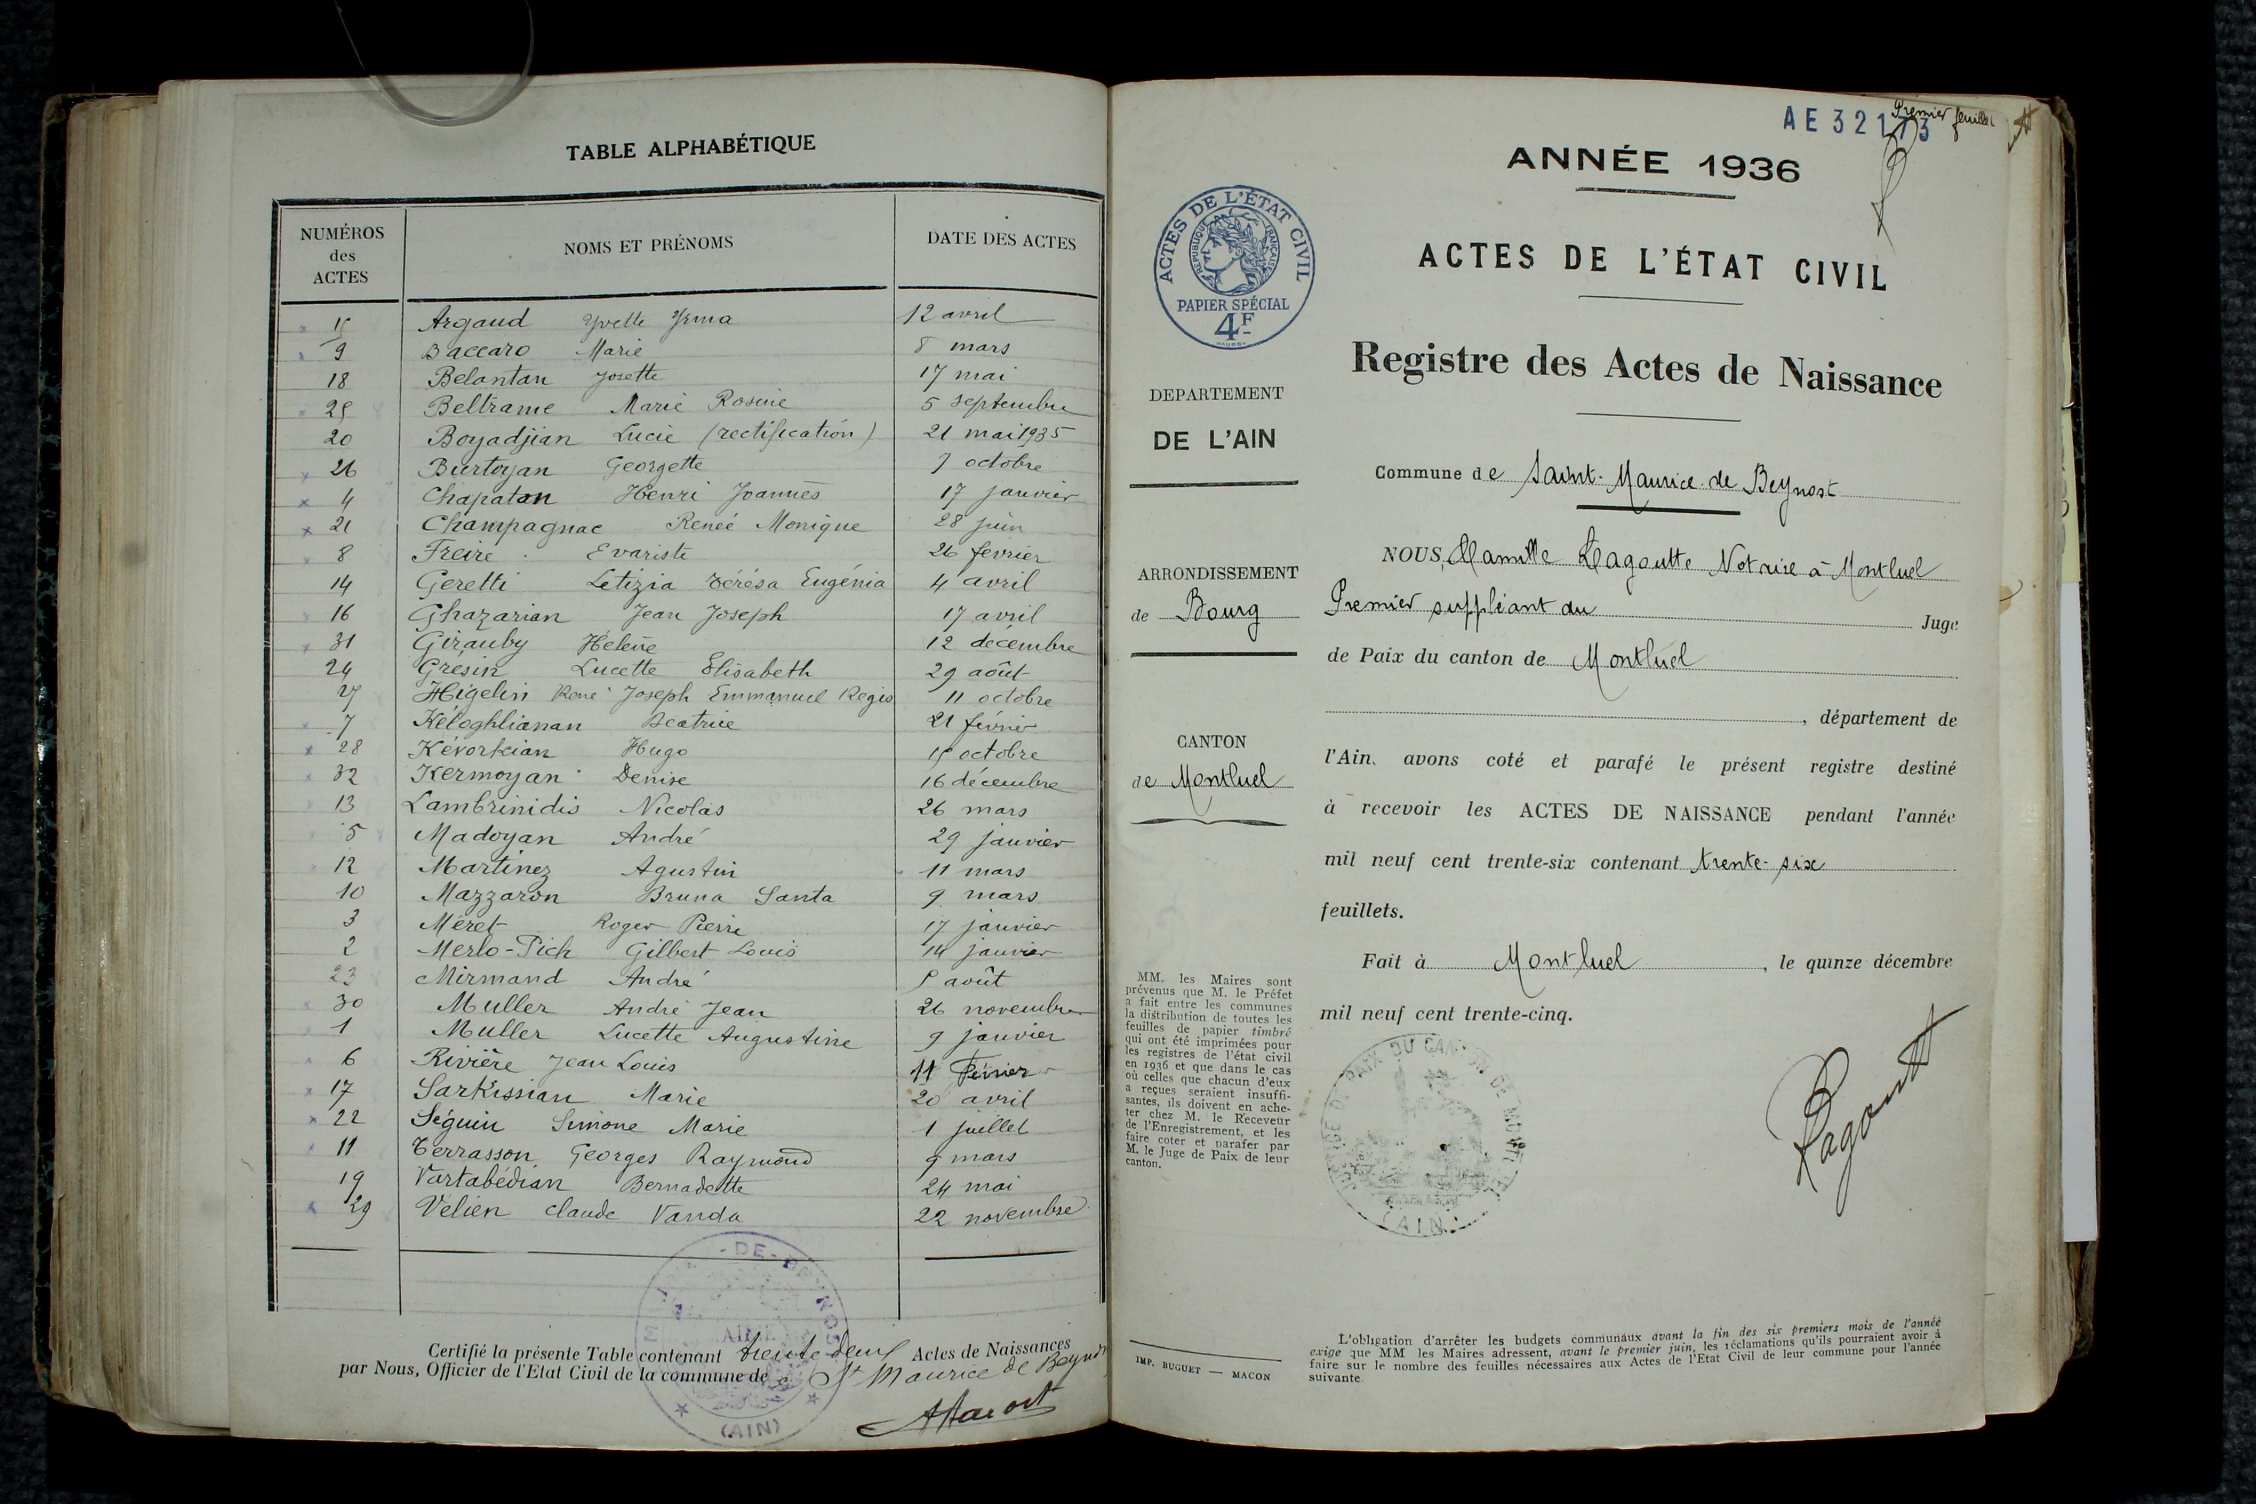 TABLE ALPHABÉTIQUE
NUMÉROS des ACTES NOMS ET PRÉNOMS DATE DES ACTES
15 Argaud Yvette Yrma 12 avril
9 Baccaro Marie 8 mars
18 Belantan Josette 17 mai
25 Beltrame Marie Rosine 5 septembre
20 Boyadjian Lucie (rectification) 21 mai 1935
26 Burtoyan Georgette 7 octobre
4 Chapaton Henri Joannès 17 janvier
21 Champagnac Renée Monique 28 juin
8 Freire Evariste 26 février
14 Geretti Letizia Térésa Eugénia 4 avril
16 Ghazarian Jean Joseph 17 avril
31 Girauby Hélène 12 décembre
24 Gresin Lucette Elisabeth 29 août
27 Higelin René Joseph Emmanuel Régis 11 octobre
7 Kéloghlianan Béatrice 21 février
28 Kévorkian Hugo 15 octobre
32 Kermoyan Denise 16 décembre
13 Lambrinidis Nicolas 26 mars
5 Madoyan André 29 janvier
12 Martinez Agustin 11 mars
10 Mazzaron Bruna Santa 9 mars
3 Méret Roger Pierre 17 janvier
2 Merlo-Pich Gilbert Louis 14 janvier
23 Mirmand André août
30 Muller André Jean 26 novembre
1 Muller Lucette Augustine 9 janvier
6 Rivière Jean Louis 11 Février
17 Sarkissian Marie 20 avril
22 Séguin Simone Marie 1 juillet
11 Terrasson Georges Raymond 9 mars
19 Vartabédian Bernadette 24 mai
29 Vélien Claude Vanda 22 novembre
Certifié la présente Table contenant trente deux Actes de Naissances
par Nous, Officier de l'Etat Civil de la commune de St Maurice de Beynost
(AIN)
AE 32173
Premier feuillet
ANNÉE 1936
ACTES DE L'ÉTAT CIVIL
RÉPUBLIQUE FRANÇAISE
PAPIER SPÉCIAL
4F
ACTES DE L'ÉTAT CIVIL
Registre des Actes de Naissance
DEPARTEMENT
DE L'AIN
Commune de Saint-Maurice-de Beynost
ARRONDISSEMENT
de Bourg
CANTON
de Montluel
NOUS, Camille Ragoutte Notaire à Montluel
Premier suppléant du Juge
de Paix du canton de Montluel
, département de
l'Ain, avons coté et parafé le présent registre destiné
à recevoir les ACTES DE NAISSANCE pendant l'année
mil neuf cent trente-six contenant trente-six
feuillets.
Fait à Montluel, le quinze décembre
mil neuf cent trente-cinq.
MM. les Maires sont
prévenus que M. le Préfet
a fait entre les communes
la distribution de toutes les
feuilles de papier timbré
qui ont été imprimées pour
les registres de l'état civil
en 1936 et que dans le cas
où celles que chacun d'eux
a reçues seraient insuffi-
santes, ils doivent en ache-
ter chez M. le Receveur
de l'Enregistrement, et les
faire coter et parafer par
M. le Juge de Paix de leur
canton.
(AIN)
Ragoutt
IMP. BUGUET — MACON
L'obligation d'arrêter les budgets communaux avant la fin des six premiers mois de l'année
exige que MM les Maires adressent, avant le premier juin, les réclamations qu'ils pourraient avoir à
faire sur le nombre des feuilles nécessaires aux Actes de l'Etat Civil de leur commune pour l'année
suivante.